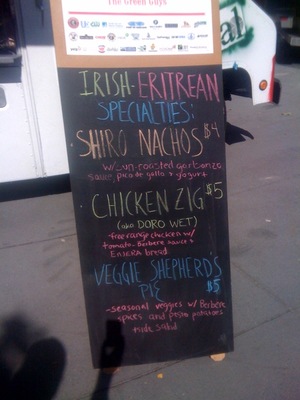 The Green Guys
IRISH-ERITREAN
SPECIALTIES:
SHIRO NACHOS $4
w/ sun-roasted garbanzo
sauce, pico de gallo & yogurt
CHICKEN ZIG $5
(aka DORO WET)
-free range chicken w/
tomato-Berbere sauce &
Enjera bread
VEGGIE SHEPHERD'S
PIE $5
-seasonal veggies w/ Berbere
spices and pesto potatoes
+side salad